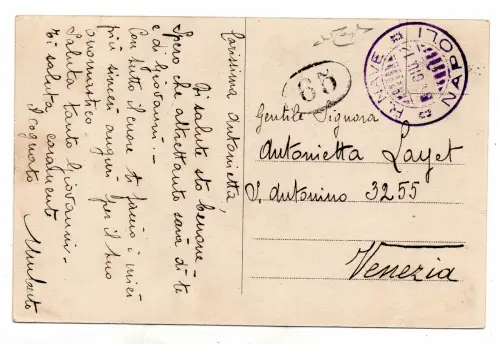 Carissima Antonietta,
Di salute sto benone
Spero che altrettanto sarà di te
e di Giovanni. -
Con tutto il cuore ti porgo i miei
più sinceri auguri per il tuo
onomastico.
Saluta tanto Giovanni. -
Ti saluta caramente
il cognato
Umberto
R. NAVE
NAPOLI
Gentile Signora
Antonietta Layet
S. Antonino 3255
Venezia